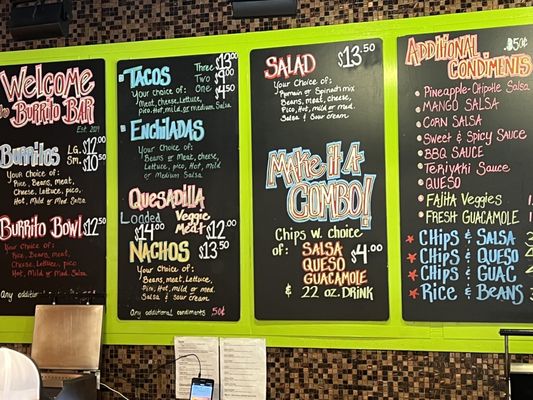 Welcome
to Burrito BAR
Est. 2011
Burritos LG. $12.50
SM. $10.50
Your choice of:
Rice, Beans, meat,
Cheese, Lettuce, pico,
Hot, Mild or Med
Burrito Bowl $12.50
Your Choice of:
Rice, Beans, Meat,
Cheese, Lettuce, pico
Hot, Mild or Med Salsa
Any additional
TACOS Three $12.00
Two $9.00
One $4.50
Your choice of:
Meat, cheese, Lettuce,
Pico, Hot, mild or medium Salsa
Enchiladas
Your Choice of:
Beans or meat, cheese,
Lettuce, pico, Hot, mild
or medium Salsa
Quesadilla
Loaded $14.00 Veggie Meat $12.00
NACHOS $13.50
Your Choice of:
Beans, Meat, Lettuce, cheese,
Pico, Hot, Mild or med.
Salsa & sour cream
Any additional condiments .50¢
SALAD $13.50
Your Choice of:
Romain or Spinach mix
Beans, meat, cheese,
Pico, Hot, mild or med.
Salsa & Sour cream
Make it a
COMBO!
Chips w. choice
of: SALSA
QUESO $4.00
GUACAMOLE
& 22 oz. DRINK
Additional .50¢
CONDIMENTS
Pineapple-Chipotle Salsa
MANGO SALSA
CORN SALSA
Sweet & Spicy Sauce
BBQ SAUCE
Teriyaki Sauce
QUESO
FAJITA Veggies
FRESH GUACAMOLE
CHIPS & SALSA
CHIPS & QUESO
CHIPS & GUAC
RICE & BEANS